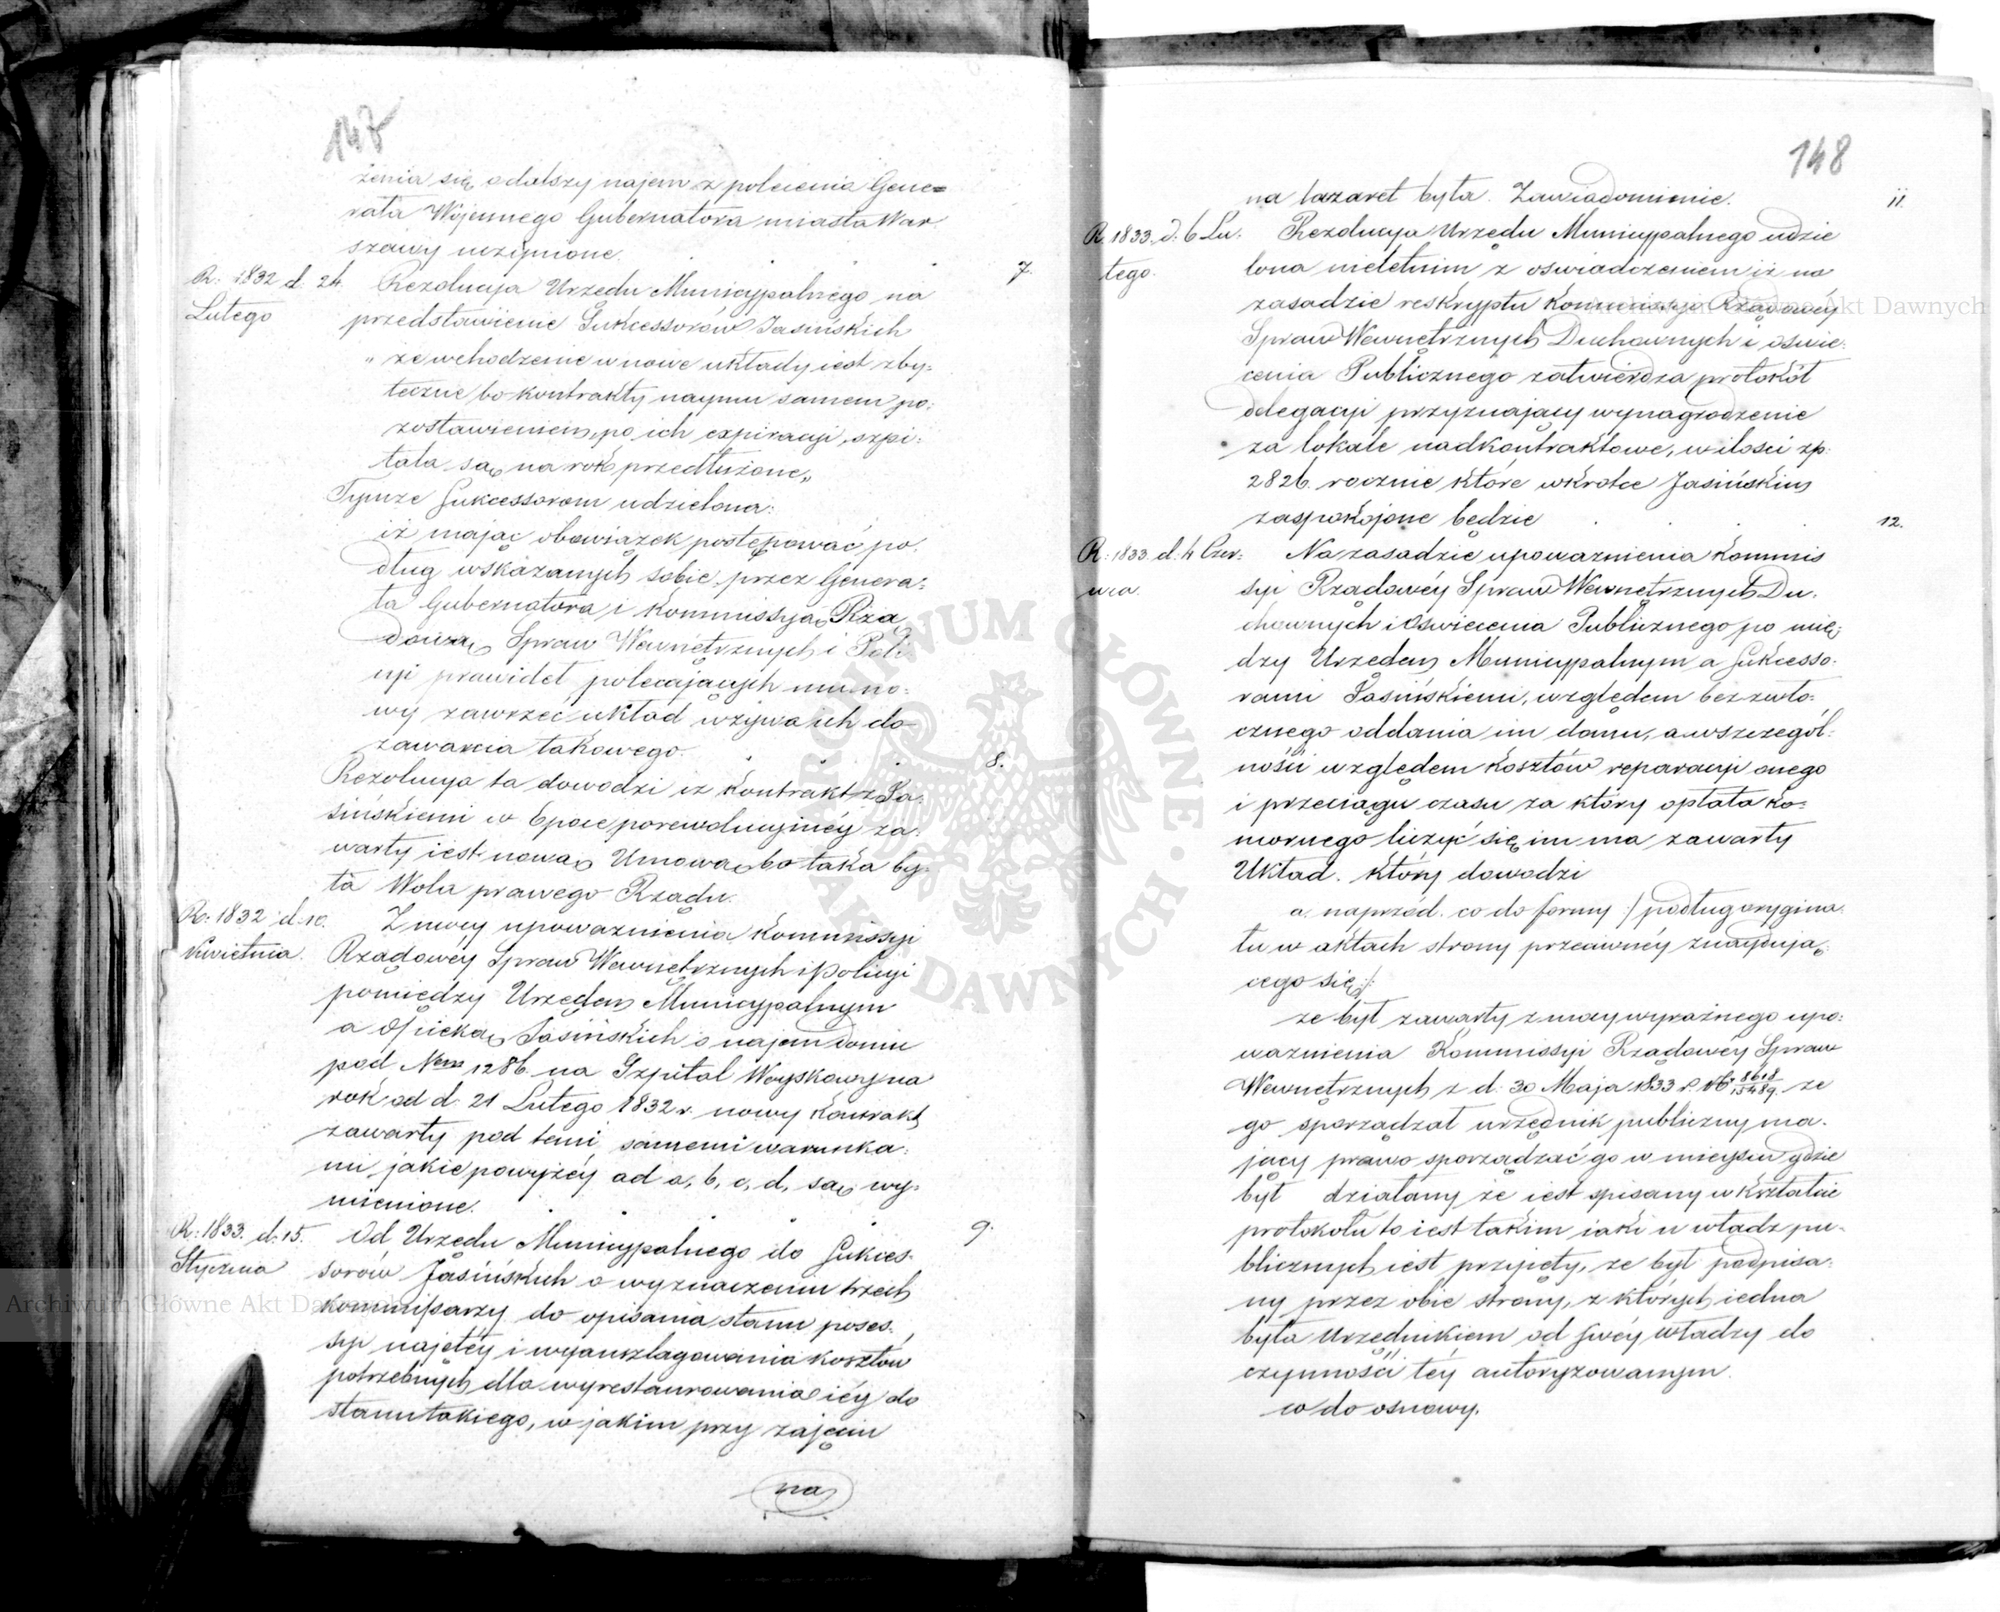 147
żenia się o dalszy najem z polecenia Gene=
rała Wojennego Gubernatora miasta War
szawy uczynione. 7.
R: 1832 d. 24. Rezolucya Urzędu Municypalnego na
Lutego przedstawienie Sukcessorów Jasińskich
„ że wchodzenie w nowe układy iest zby-
teczne bo kontrakty naymu samem po:
zostawieniem, po ich expiracyi, szpi:
tala są na rok przedłużone„
Tymże Sukcessorom udzielona:
iż mając obowiązek postępować po.
dług wskazanych sobie przez Genera:
ła Gubernatora i Kommissyą Rzą
dową Spraw Wewnętrznych i Poli
cyi prawideł, polecających mu no:
wy zawrzeć układ wzywa ich do
zawarcia takowego. 8.
Rezolucya ta dowodzi iż kontrakt z Ja:
sińskiemi w Epoce porewolucyinéy za:
warty iest nową Umową bo taka by-
ła Wola prawego Rządu.
R: 1832 d. 10. Z mocy upoważnienia Kommissyi
Kwietnia. Rządowéy Spraw Wewnętrznych i Policyi
pomiędzy Urzędem Municypalnym
a Opieką Jasińskich o najem domu
pod Nem 1286 na Szpital Woyskowy na
rok od d. 21 Lutego 1832 r. nowy Kontrakt
zawarty pod temi samemi warunka:
mi jakie powyżéy ad a, b, c, d, są wy-
mienione. 9.
R: 1833. d: 15. Od Urzędu Municypalnego do Sukces-
Stycznia sorów Jasińskich o wyznaczeniu trzech
kommissarzy do opisania stanu poses-
syi najętéy i wyanszlagowania kosztów
potrzebnych dla wyrestaurowania iéy do
stanu takiego, w jakim przy zajęciu
na
148
na lazaret była. Zawiadomienie. 11.
R. 1833. d. 6 Lu: Rezolucya Urzędu Municypalnego udzie
tego. lona nieletnim z oświadczeniem iż na
zasadzie reskryptu Kommissyi Rządowéy
Spraw Wewnętrznych Duchownych i oświe:
cenia Publicznego zatwierdza protokół
delegacyi przyznający wynagrodzenie
za lokale nadkontraktowe, w ilości zp.
2826. rocznie które wkrótce Jasińskim
zaspokojone będzie 12.
R: 1833. d. 4 Czer: Na zasadzie upoważnienia Kommis
wca. syi Rządowéy Spraw Wewnętrznych Du.
chownych i Oświecenia Publicznego po mię:
dzy Urzędem Municypalnym a Sukcesso:
rami Jasińskiemi, względem bezzwło:
cznego oddania im domu, a wszczegól:
ności względem kosztów reparacyi onego
i przeciągu czasu za który opłata ko:
mornego liczyć się im ma zawarty
Układ. który dowodzi
a. naprzód. co do formy /: podług orygina
łu w aktach strony przeciwnéy znaydują:
cego się :/
że był zawarty z mocy wyraźnego upo:
ważnienia Kommissyi Rządowéy Spraw
Wewnętrznych z d. 30 Maja 1833 r. No 8618/15489. że
go sporządzał urzędnik publiczny ma.
jący prawo sporządzać go w mieyscu gdzie
był działany że iest spisany w kształcie
protokołu to iest takim iaki u władz pu-
blicznych iest przyięty, że był podpisa:
ny przez obie strony, z których iedna
była Urzędnikiem od swéy władzy do
czynności téy autoryzowanym.
co do osnowy.
ARCHIWUM GŁÓWNE AKT DAWNYCH
Archiwum Główne Akt Dawnych
Archiwum Główne Akt Dawnych